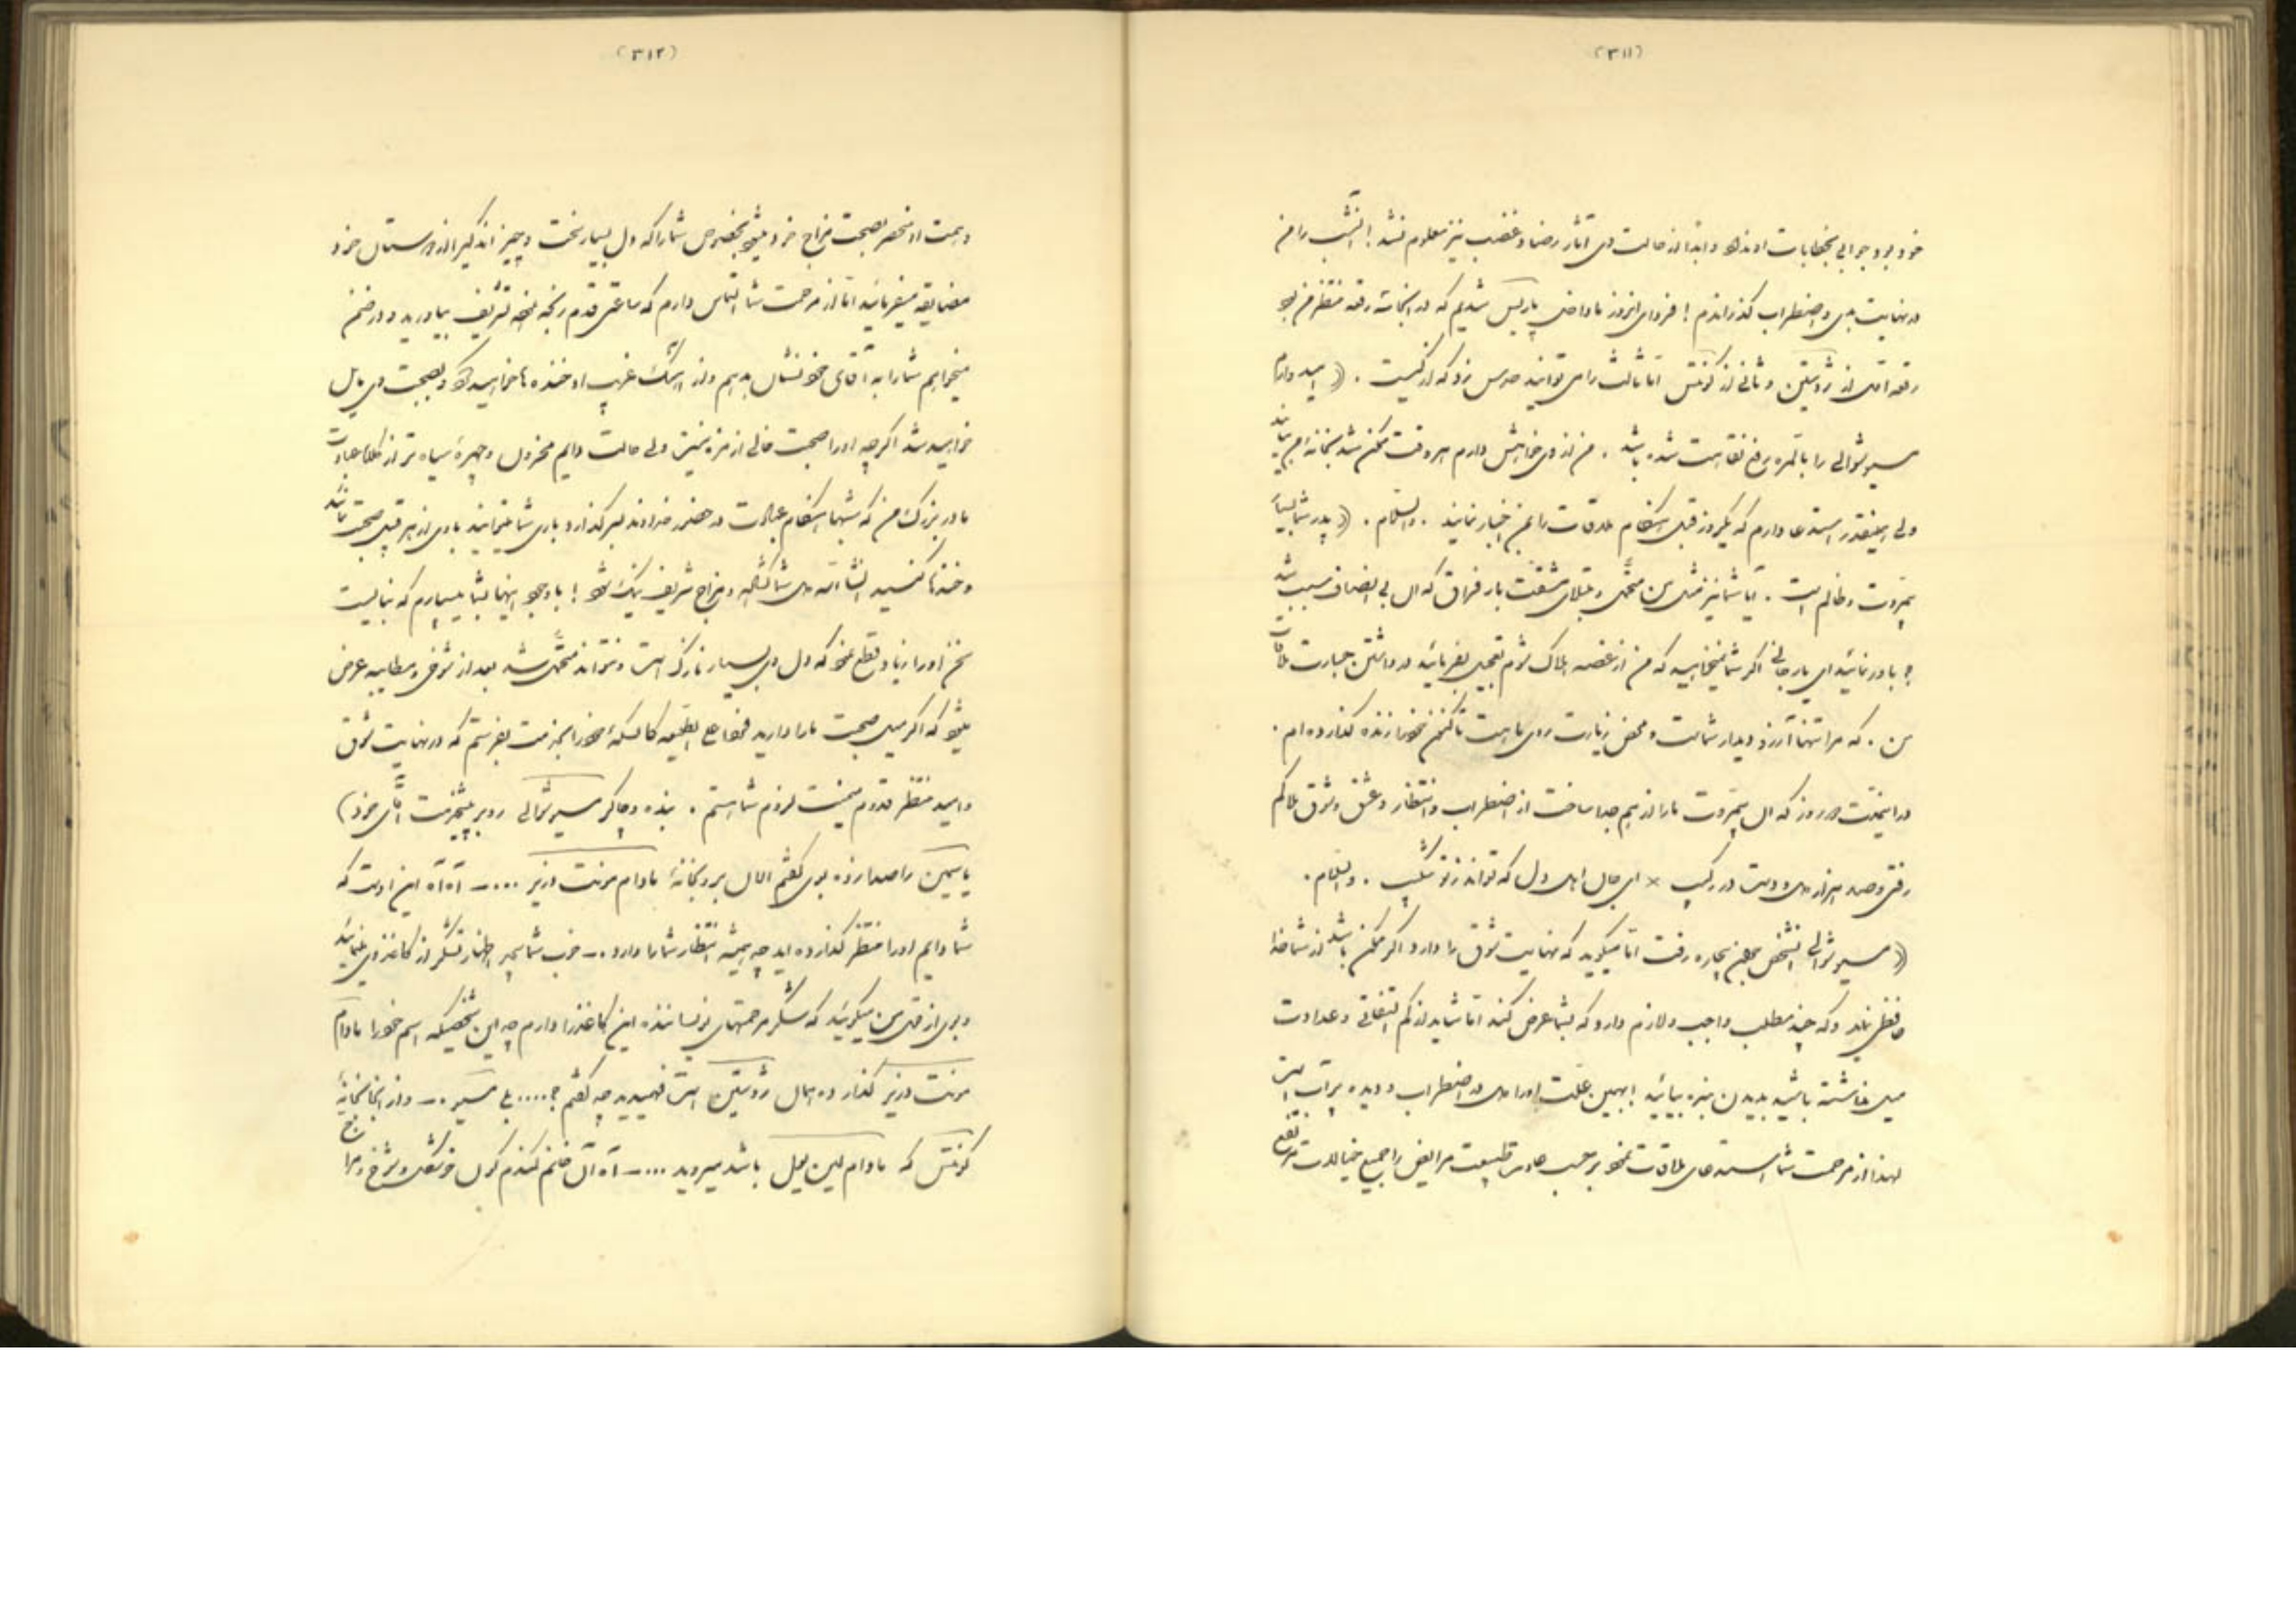 (۳۱۱)
خود برد جوابی بخطابات او نداد و ابدا از حالت وی آثار رضا و غضب نیز معلوم نشد! آنشب را من
در نهایت بدی و اضطراب گذراندم! فردای انروز ما وارد پاریس شدیم که در انجا سه رقعه منتظر من بود
رقعه اول از ژوستین و ثانی از کونتس اما ثالث را می توانید حدس زد که از کیست . (( امیدوارم
مسیو شوالی را بالمره رفع نقاهت شده باشد . من از وی خواهش دارم هر وقت ممکن شد بخانه ام بیاید
ولی اینقدر استدعا دارم که یکروز قبل هنگام ملاقات را بمن اخبار نمایند . والسلام . (( پدر شما بسیار
بیمروت و ظالم است . آیا شما نیز مثل من متحمل و مبتلای مشقت بار فراق که ال بی انصاف سبب شد
؟ باور نمائید ای یار جانی اگر شما میخواهید که من از غصه هلاک شوم تعجیل بفرمائید در داشتن جسارت ملاقات
من . که مرا تنها آرزو دیدار شماست و محض زیارت روی ماهت تاکنون خود را زنده گذارده ام .
در اینمدت دو روز که ال بیمروت ما را از هم جدا ساخت از اضطراب و انتظار و عشق و شوق هلاکم
رفتی و صد هزار دل و دست در رکیب × ای جان اهل دل که تواند ز تو شکیب . والسلام .
(( مسیو شوالی انشخص بمعنی بیچاره رفت اما میگوید که نهایت شوق را دارد اگر ممکن باشد از شما خدا
حافظی نماید و که چند مطلب واجب و لازم دارد که بشما عرض کند اما شاید از کم التفاتی و عداوت
میل نداشته باشید بدیدن بنده بیائید! بهمین علت او را دل در اضطراب و دیده پر آب است
لهذا از مرحمت شما استدعای ملاقات نمود بر حسب عادت طبیعت مرا ایض را جمیع خیالات مرتفع
(۳۱۲)
و همت او منحصر بصحبت مزاج خود میشود بخصوص شما را که دل بسیار سخت و چیز اندکی را از دوستان خود
مضایقه میفرمائید اما از مرحمت شما التماس دارم که ساعتی قدم رنجه نموده تشریف بیاورید و در ضمن
میخواهم شما را به آقای خود نشان بدهم و از اشک غریب او خنده ها خواهید کرد و بصحبت وی مایل
خواهید شد اگرچه او را صحبت خالی از مزه نیست ولی حالت دایم محزون و چهرهٔ سیاه تر از کتاب عبادت
مادر بزرگ من که شبها هنگام عبادت در حضور خداوند بسر گذارد باری شما میتوانید با وی از هر قبیل صحبت نمائید
و خنده ها کنید انشاءالله دل شما گشاده و مزاج شریف نیک شود! با وجود اینها بشما میسپارم که نبایست
سخن او را زیاد قطع نمود که دل وی بسیار نازک است و نتواند متحمل شد بعد از شوخی و مطایبه عرض
میشود که اگر میل صحبت ما را دارید فردا صبح الطلیعه کالسکهٔ خود را بخدمت بفرستم که در نهایت شوق
و امید منتظر قدوم میمنت لزوم شما هستم . بنده و چاکر مسیو شوالی روبر پیشخدمت آقای خود)
یاسمین را صدا زده بوی گفتم الان برو بخانهٔ مادام مونت ورنیر .... ـ آه آه این اوست که
شما دایم او را منتظر گذارده اید چه همیشه انتظار شما را دارد .ـ خوب شما بجز اظهار تشکر از کاغذ وی بنمائید
و بوی از قول من میگوئید که تشکر مرحمتهای فرستاننده این کاغذ را دارم چه این شخصیکه اسم خود را مادام
مونت ورنیر گذارده همان ژوستین است فهمیدید چه گفتم ؟.... بلی مسیو .ـ و از انجا بخانهٔ
کونتس که مادام لین ویل باشد میروید .... ـ آه آن خانم گندم گون خوشگل و شوخ و مرا